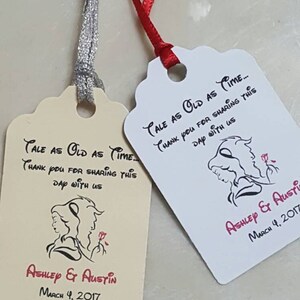 Tale as Old as Time...
Thank you for sharing this
day with us
Ashley & Austin
March 4, 2017
Tale as Old as Time...
Thank you for sharing this
day with us
Ashley & Austin
March 4, 2017